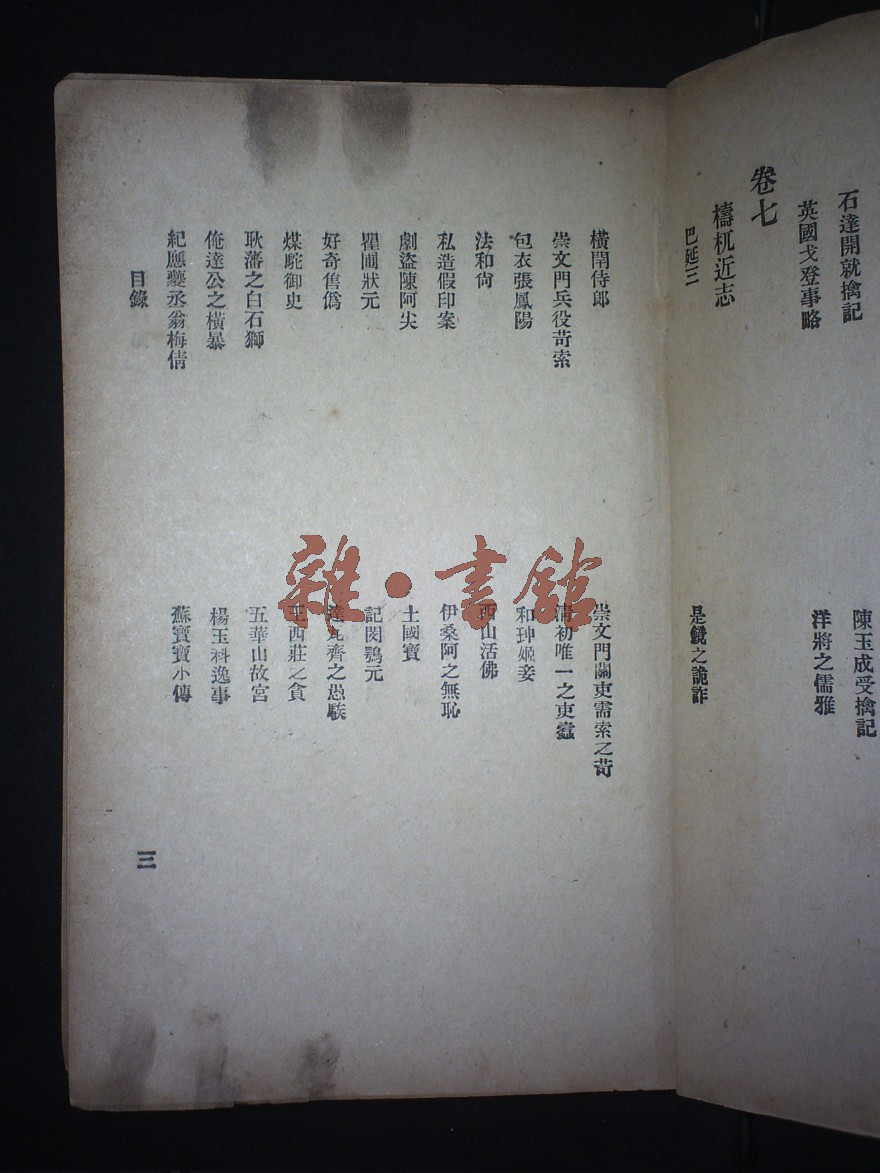 石達開就擒記
陳玉成受擒記
英國戈登事略
洋將之儒雅
卷七
檮杌近志
巴延三
是鏡之詭詐
橫閈侍郎
崇文門關吏需索之苛
崇文門兵役苛索
清初唯一之吏蠹
包衣張鳳陽
和珅姬妾
法和尙
西山活佛
私造假印案
伊桑阿之無恥
劇盜陳阿尖
土國寶
瞿圃狀元
記閔鶚元
好奇售僞
達充齊之愚騃
煤駝御史
王西莊之貪
耿藩之白石獅
五華山故宮
俺達公之橫暴
楊玉科逸事
紀應夔丞翁梅倩
蘇寶寶小傳
目錄
三
雜·書館